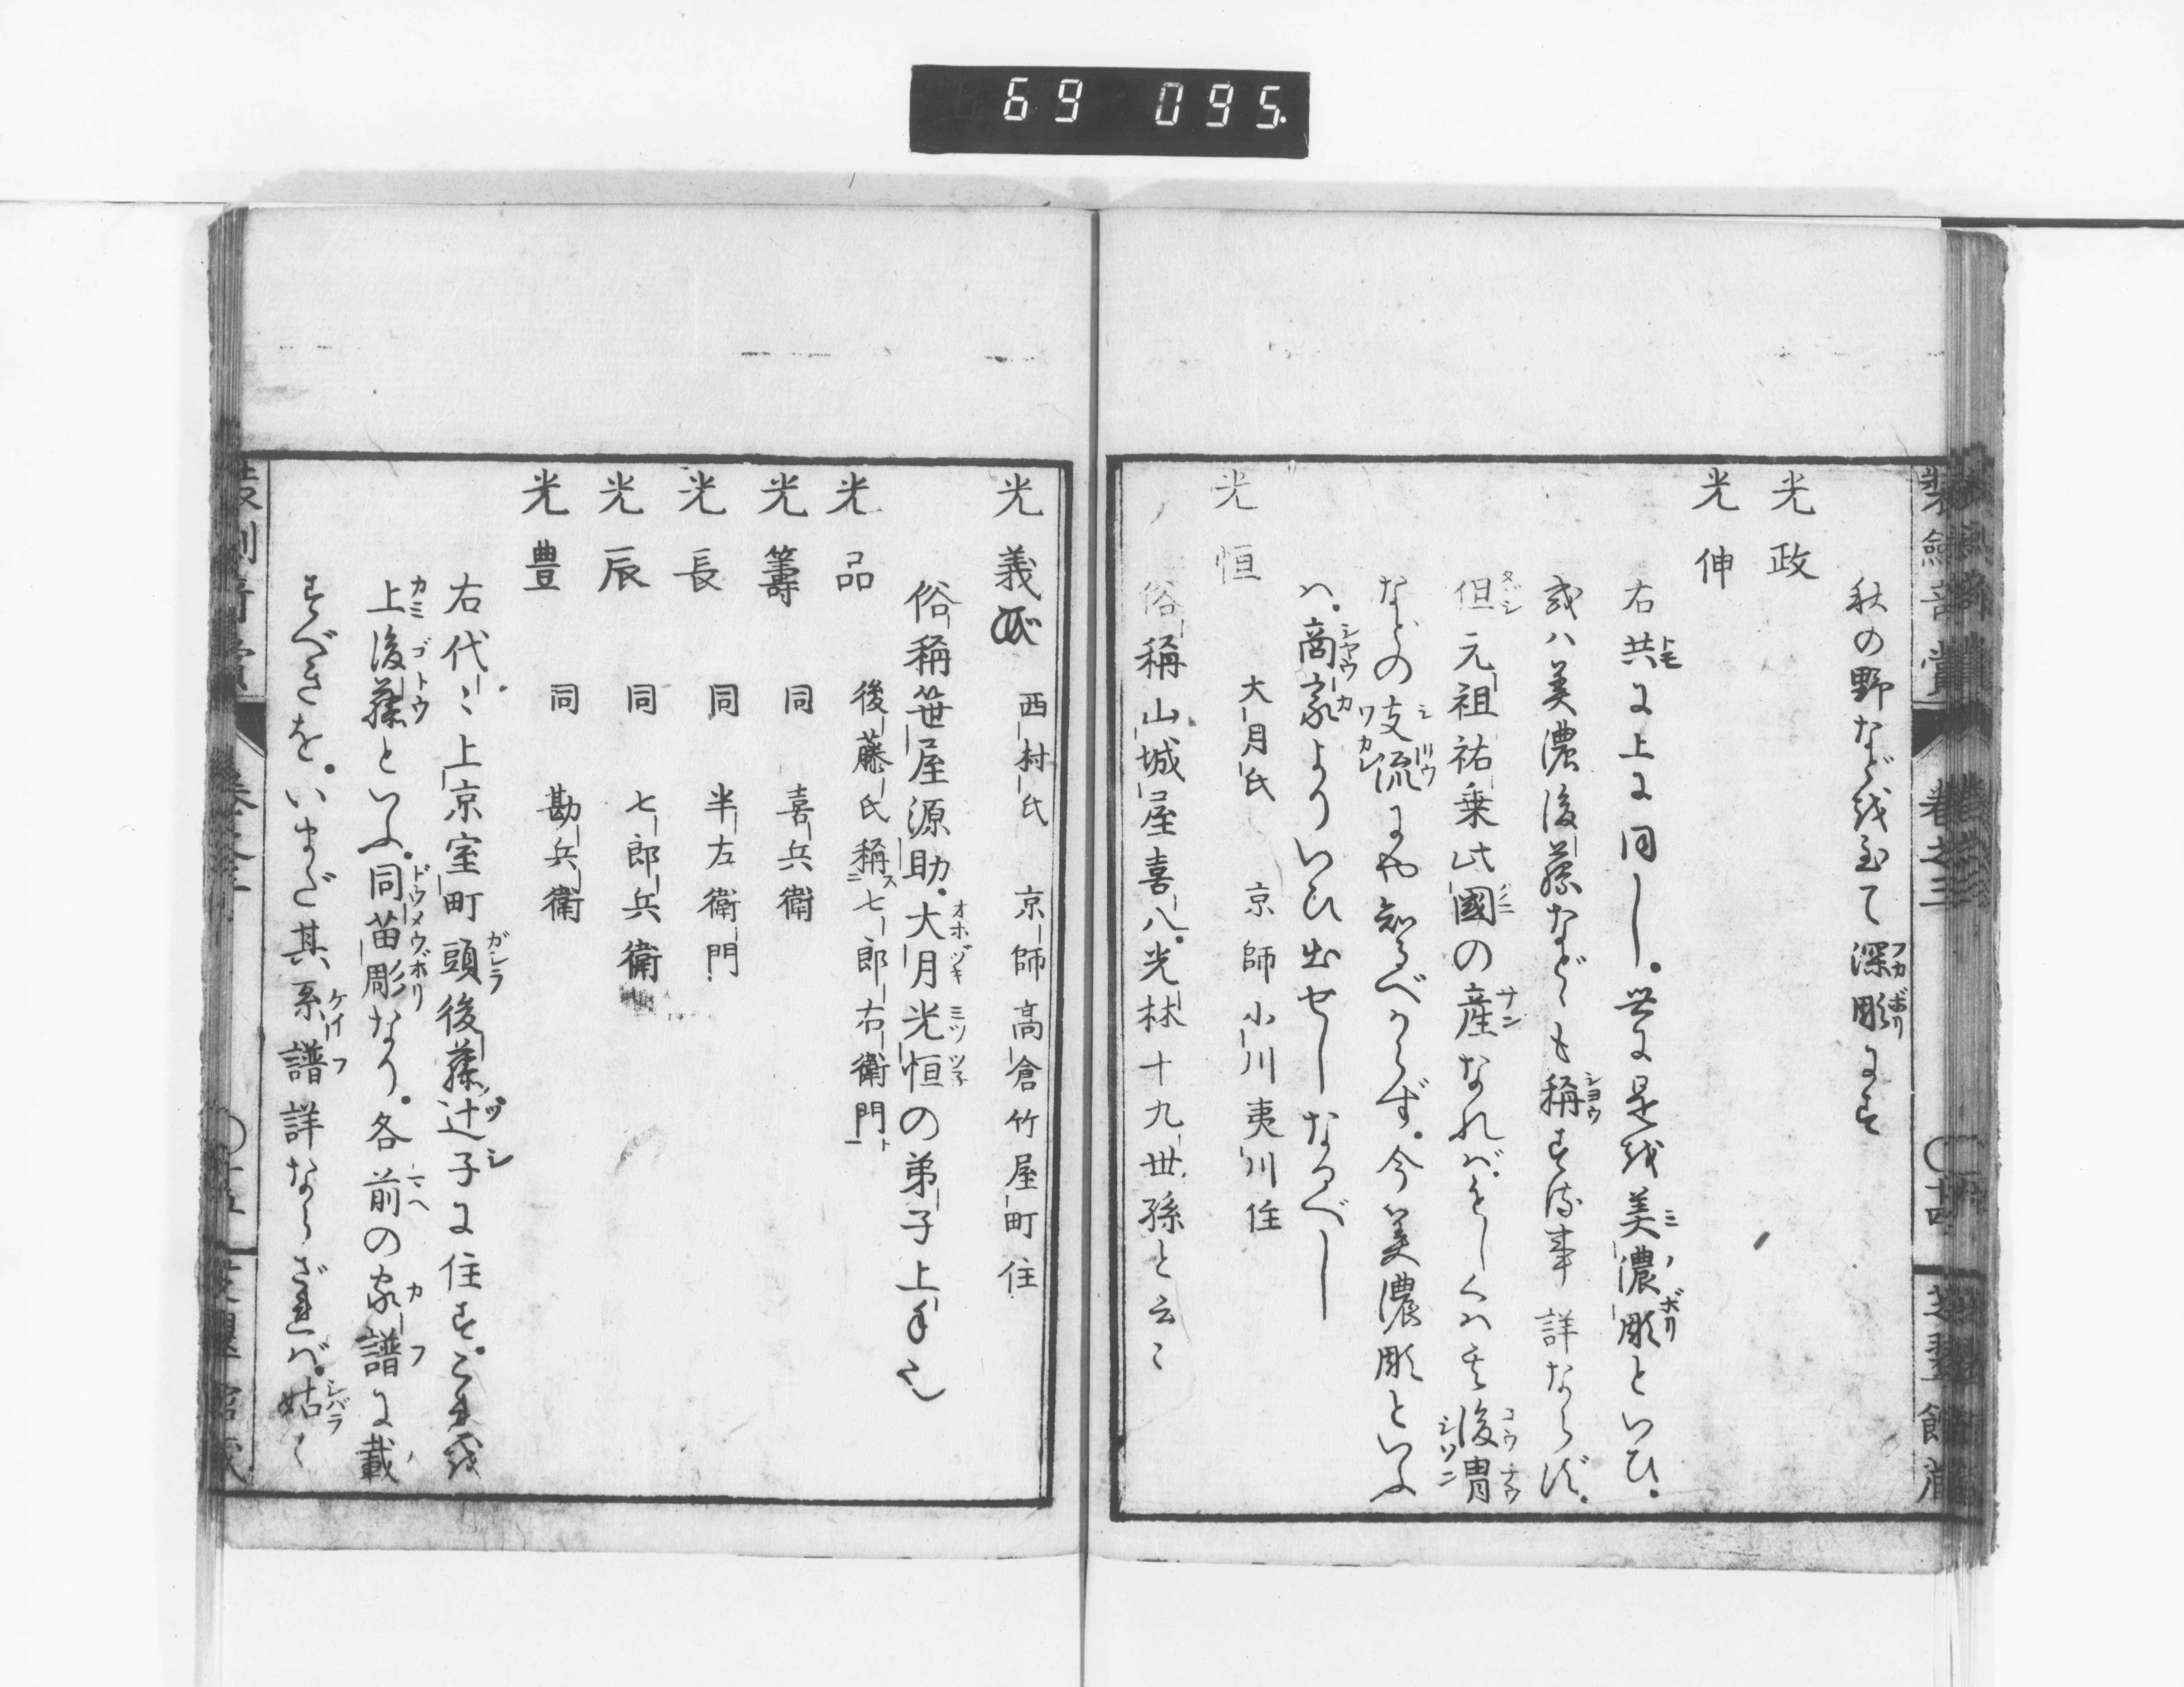 69 095.
秋の野など越至て深彫にす
光政
光伸
右共に上に同し。世に是越美濃彫といひ。
或ハ美濃後藤なども称する事詳ならず。
但元祖祐乗此國の産なればもしくハ其後冑
などの支流にや知るべからず。今美濃彫といふ
ハ。商家よりいひ出せしなるべし
光恒 大月氏 京師小川夷川住
俗稱山城屋喜八。光林十九世孫と云々
卷之三
光義 西村氏 京師高倉竹屋町住
俗稱笹屋源助。大月光恒の弟子上手也
光品 後藤氏稱七郎右衛門
光籌 同 喜兵衛
光長 同 半左衛門
光辰 同 七郎兵衛
光豊 同 勘兵衛
右代々上京室町頭後藤辻子に住す。これ越
上後藤といふ。同苗彫なり。各前の家譜に載
すべきを。いまだ其系譜詳ならざれば。姑く